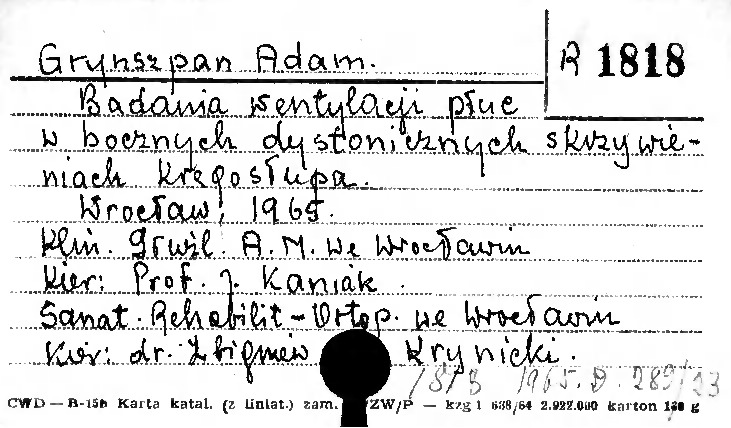 Grynszpan Adam.
R 1818
Badania wentylacji płuc
w bocznych dystonicznych skrzywie-
niach kręgosłupa.
Wrocław, 1965.
Klin. Gruźl. A.M. we Wrocławiu
Kier: Prof. J. Kaniak.
Sanat. Rehabilit-Ortop. we Wrocławiu
Kier: dr. Zbigniew Krynicki.
1965. D. 289/33
CWD — B-15b Karta katal. (z liniat.) zam. ZW/P — kzg 1 638/64 2.922.000 karton g